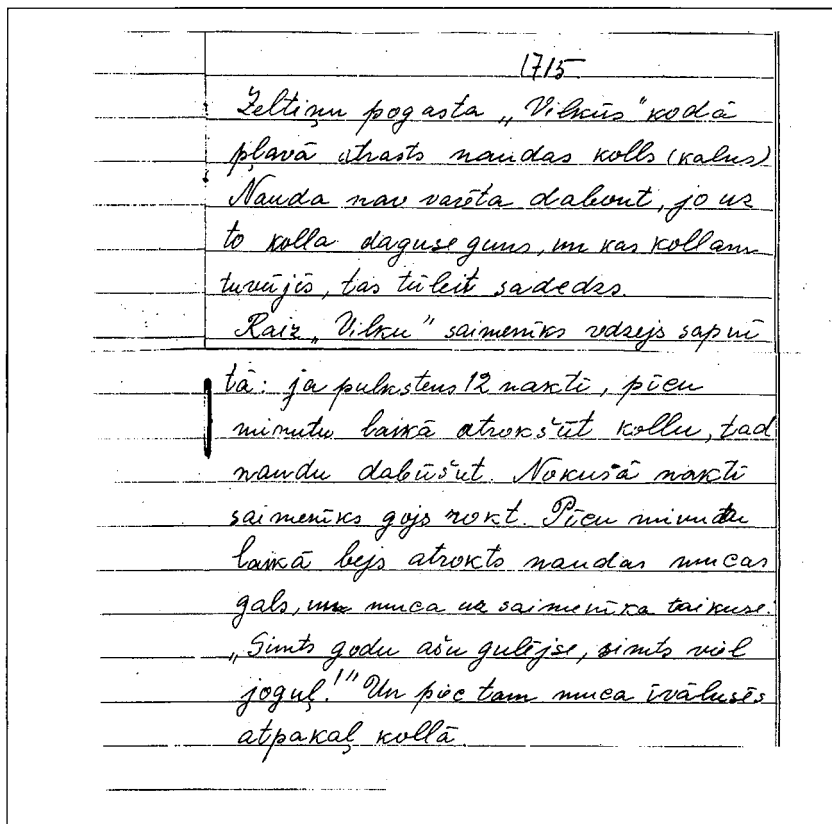 1715
Zeltiņu pogasta „Vilkūs" kodā
pļavā atrasts naudas kolls (kalns)
Nauda nav varēta dabout, jo uz
to kolla daguse guns, un kas kollam
tuvūjēs, tas tūleit sadedzs.
Raiz „Vilku" saimenīks redzejs sapnī
tā: ja pulkstens 12 naktī, pīcu
minutu laikā atrokšūt kollu, tad
naudu dabūšut. Nokušā naktī
saimenīks gojs rokt. Pīcu minutu
laikā bejs atrokts naudas mucas
gals, un muca uz saimenīka taikuse:
„Simts godu ašu gulējse, simts viel
joguļ!" Un piec tam muca īvālusēs
atpakaļ kollā